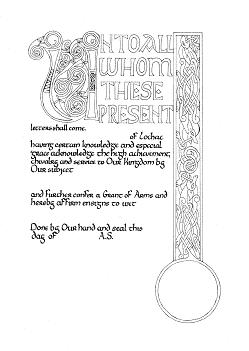 UNTO ALL
WHOM
THESE
PRESENT
letters shall come.
of Lochac
having certain knowledge and especial
grace acknowledge the high achievement,
chivalry and service to Our Kingdom by
Our subject
and further confer a Grant of Arms and
hereby affirm ensigns to wit
Done by Our hand and seal this
day of A.S.